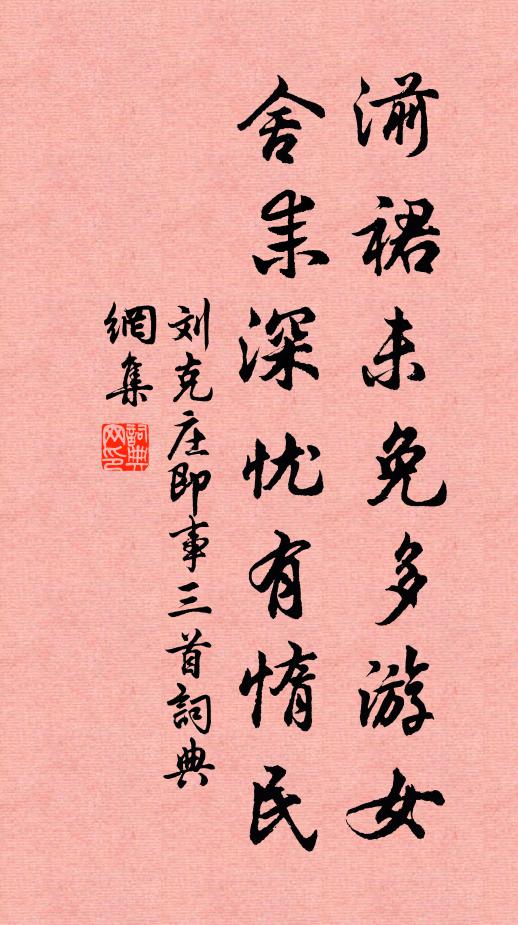 湔裙未免多游女
舍耒深忧有惰民
刘克庄即事三首詞典
網集
詞典
网印